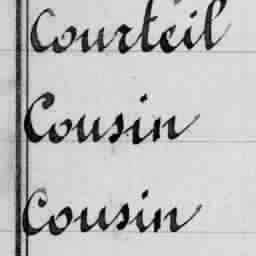 Courteil
Cousin
Cousin